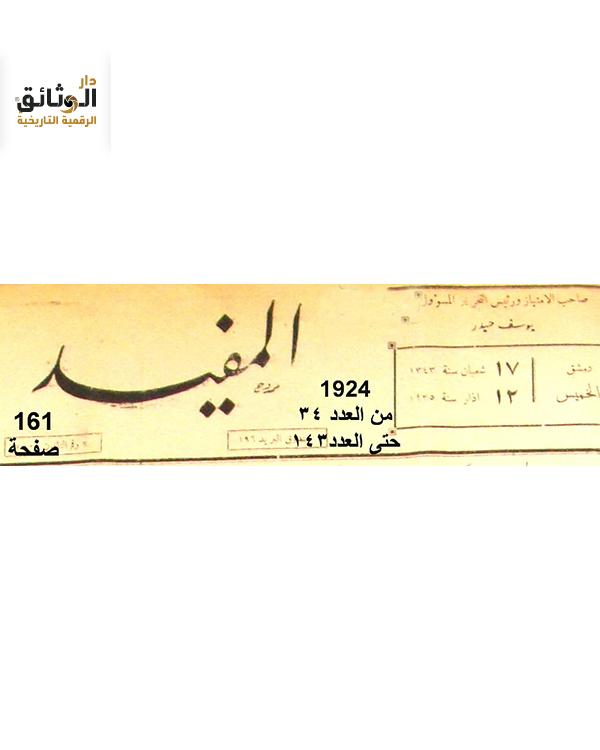 دار
الوثائق
الرقمية التاريخية
صاحب الامتياز ورئيس التحرير المسؤول
يوسف حيدر
المفيد
دمشق
الخميس
١٧ شعبان سنة ١٣٤٣
١٢ اذار سنة ١٩٢٥
1924
من العدد ٣٤
حتى العدد ١٤٣
161
صفحة
البريد ١٩٦